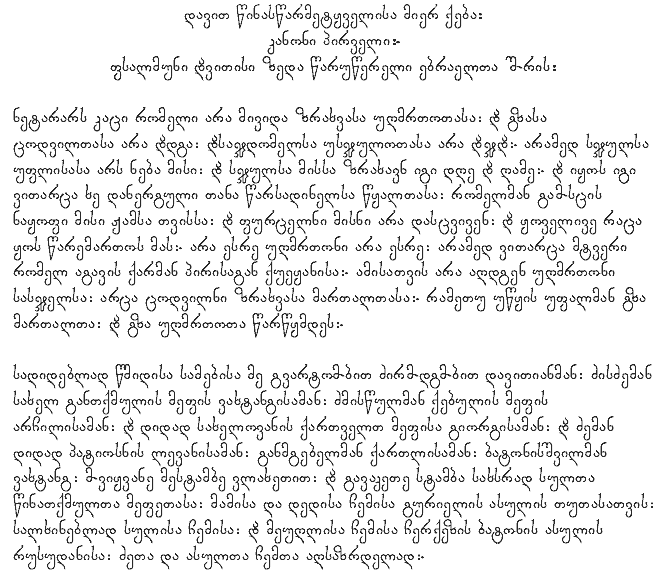 დავით წინასწარმეტყველისა მიერ ქება:
კანონი პირველი:-
ფსალმუნი დ~ვითისი ზედა წარუწერელი ებრაელთა შ~რის:
ნეტარარს კაცი რომელი არა მივიდა ზრახვასა უღმრთოთასა: დ~ გზასა
ცოდვილთასა არა დ~დგა: დ~საჯდომელსა უსჯულოთასა არა დ~ჯდ~:- არამედ სჯულსა
უფლისასა არს ნება მისი: დ~ სჯულსა მისსა ზრახავნ იგი დღე დ~ ღამე:- დ~ იყოს იგი
ვითარცა ხე დანერგული თანა წარსადინელსა წყალთასა: რომელმან გამ~სცის
ნაყოფი მისი ჟამსა თვისსა: დ~ ფურცელნი მისნი არა დასცვივენ: დ~ ყოველივე რაცა
ყოს წარემართოს მას:- არა ესრე უღმრთონი არა ესრე: არამედ ვითარცა მტვერი
რომელ აგავის ქარმან პირისაგან ქუეყანისა:- ამისათვის არა აღდგენ უღმრთონი
სასჯელსა: არცა ცოდვილნი ზრახვასა მართალთასა:- რამეთუ უწყის უფალმან გზა
მართალთა: დ~ გზა უღმრთოთა წარწყმდეს:-
სადიდებლად წმიდისა სამებისა მე გვარტომ~ბით ძირმ~დგმ~ბით დავითიანმან: ძისძემან
სახელ განთქმულის მეფის ვახტანგისამან: ძმისწულმან ქებულის მეფის
არჩილისამან: დ~ დიდად სახელოვანის ქართველთ მეფისა გიორგისამან: დ~ ძემან
დიდად პატიოსნის ლევანისამან: განმგებელმან ქართლისამან: ბატონისშვილმან
ვახტანგ: მ~ვიყვანე მესტამბე ვლახეთით: დ~ გავაკეთე სტამბა სახსრად სულთა
წინათქმულთა მეფეთასა: მამისა და დედისა ჩემისა გურიელის ასულის თუთასათვის:
სალხინებლად სულისა ჩემისა: დ~ მეუღლისა ჩემისა ჩერქეზის ბატონის ასულის
რუსუდანისა: ძეთა და ასულთა ჩემთა აღსაზრდელად:-